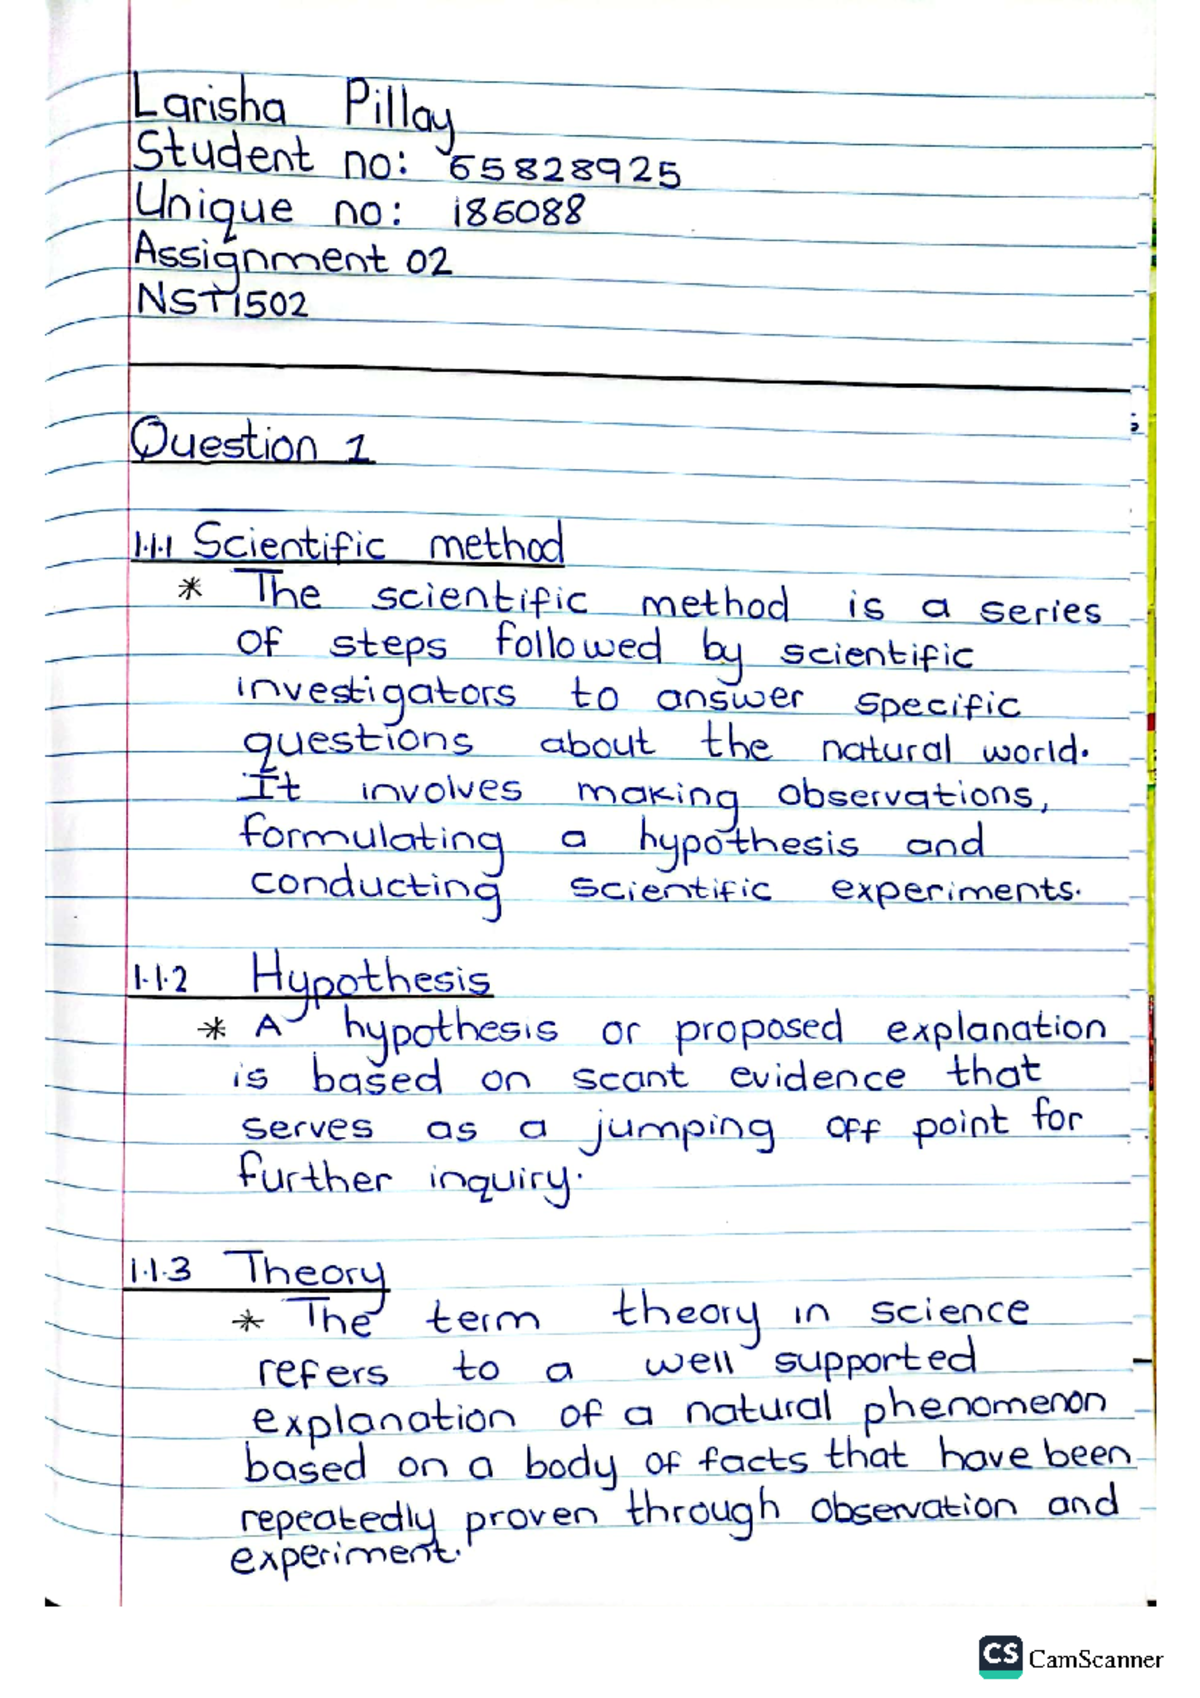 Larisha Pillay
Student no: 65828925
Unique no: 186088
Assignment 02
NST1502
Question 1
1.1.1 Scientific method
* The scientific method is a series
of steps followed by scientific
investigators to answer specific
questions about the natural world.
It involves making observations,
formulating a hypothesis and
conducting scientific experiments.
1.1.2 Hypothesis
* A hypothesis or proposed explanation
is based on scant evidence that
serves as a jumping off point for
further inquiry.
1.1.3 Theory
* The term theory in science
refers to a well supported
explanation of a natural phenomenon
based on a body of facts that have been
repeatedly proven through observation and
experiment.
CS CamScanner